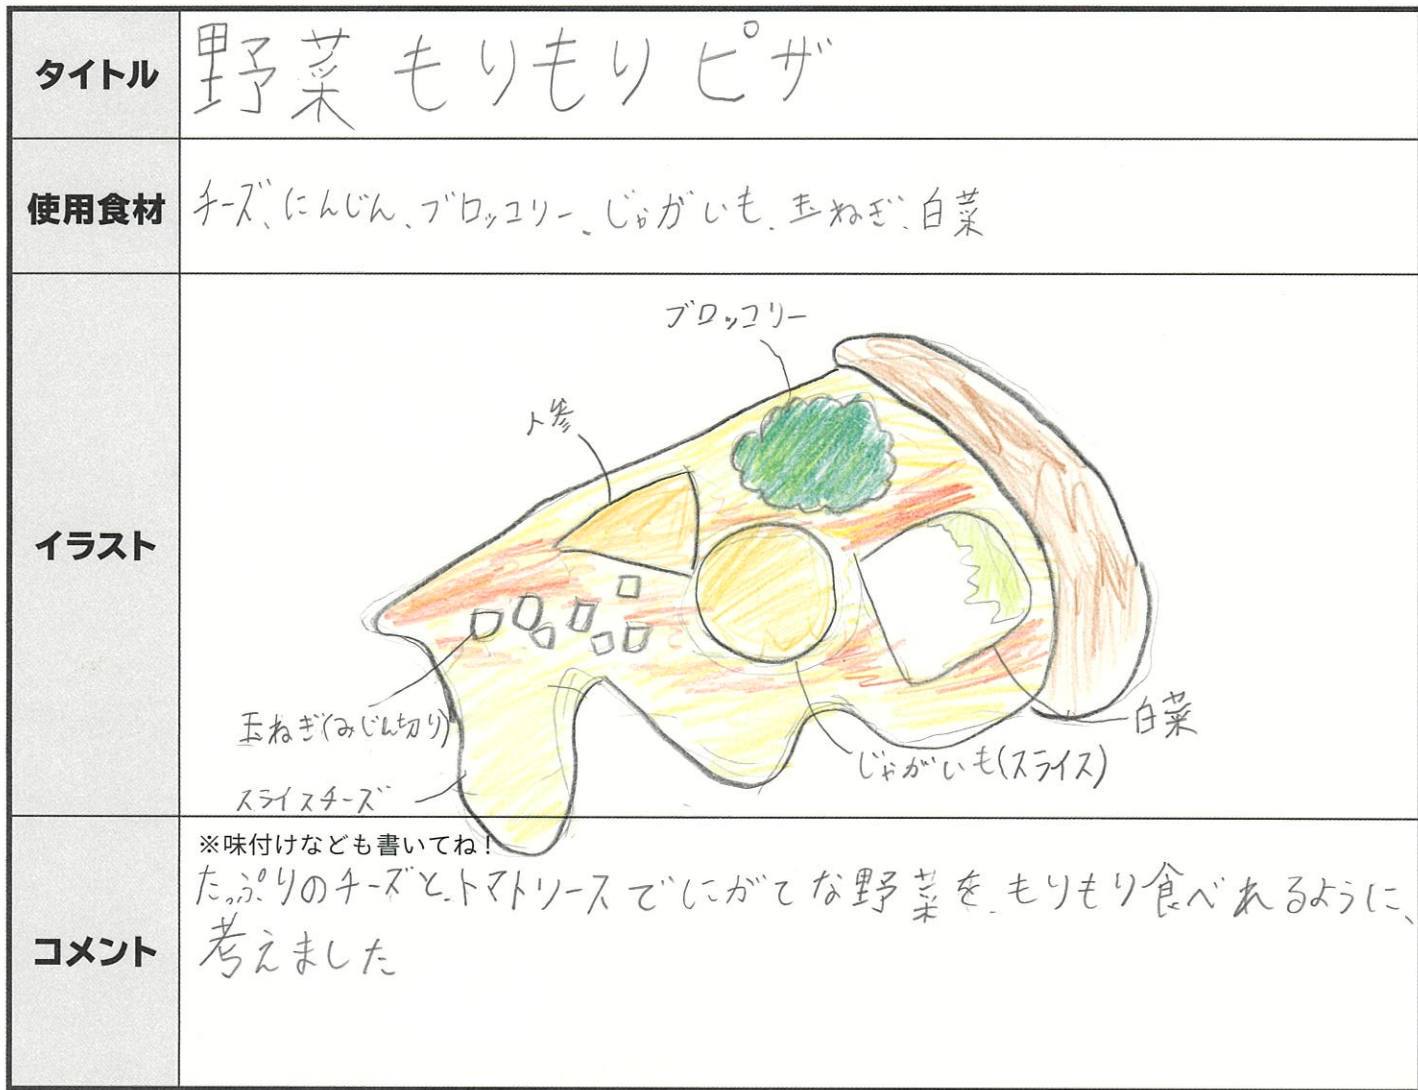 タイトル
野菜もりもりピザ
使用食材
チーズ、にんじん、ブロッコリー、じゃがいも、玉ねぎ、白菜
イラスト
ブロッコリー
人参
玉ねぎ(みじん切り)
白菜
じゃがいも(スライス)
スライスチーズ
コメント
※味付けなども書いてね!
たっぷりのチーズと、トマトソースでにがてな野菜を、もりもり食べれるように、
考えました